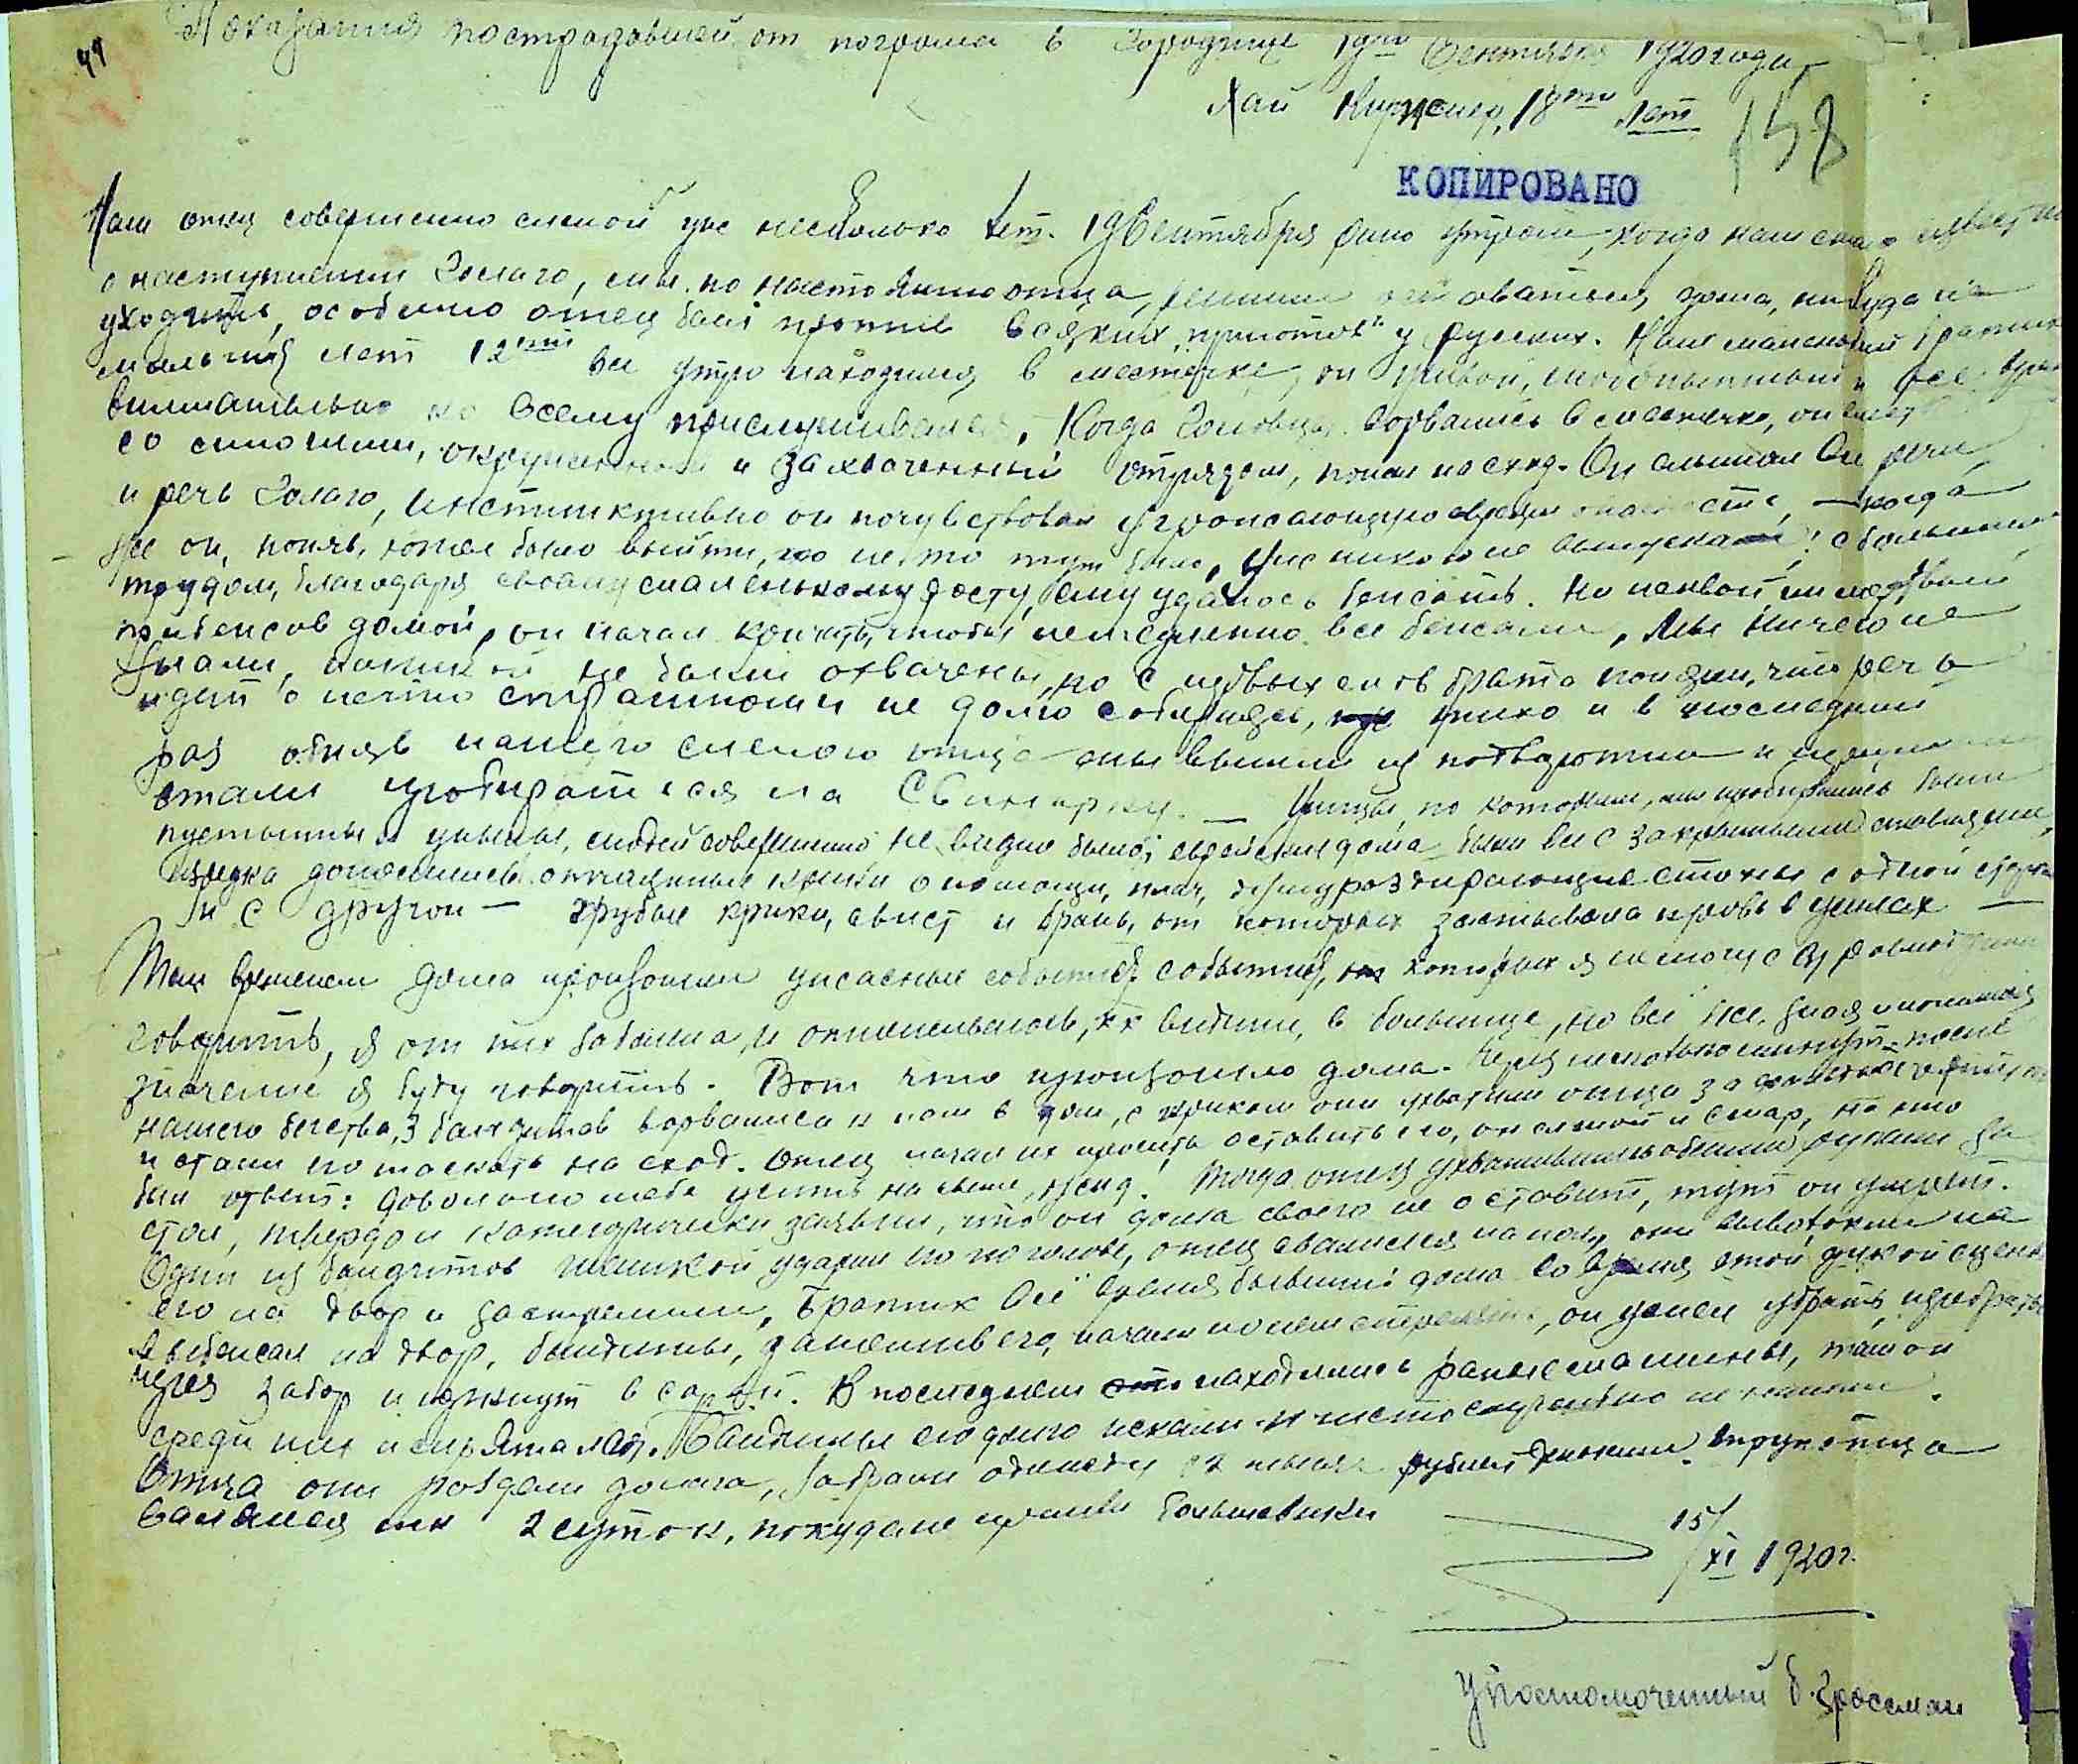 44
Показания пострадавшей от погрома в Городнице 19го Сентября 1920 года,
Хаи 18ти лет
158
КОПИРОВАНО
Наш отец совершенно слепой уже несколько лет. 19 Сентября рано утром, когда нам известно
о наступлении Голаго, мы, по настоянию отца, решили дома, никуда не
уходить, особенно отец был против всяких "приютов" у русских. Наш маленький братик
мальчик лет 12ти все утро находился в местечке, он живой, любопытный и все время
внимательно ко всему прислушивался. Когда ворвались в местечко, он вместе
со многими, окруженный и захваченный отрядом, попал на сход. Он слышал все речи
и речь Голаго, инстинктивно он почувствовал угрожающую опасность, — когда
все он, поняв, хотел было выйти, но не то тут было, уже никого не выпускали; с большим
трудом, благодаря своему маленькому росту, ему удалось бежать. Ни живой ни мертвый
прибежав домой, он начал кричать, чтобы немедленно все бежали, Мы ничего не
знали, паникой не были охвачены, но с первых слов брата поняли, что речь
идет о чем-то страшном и не долго собираясь, тихо и в последний
раз обняв нашего слепого отца мы вышли из подворотни и
стали пробираться на Свинарку. — Улицы, по которым мы пробирались были
пустынны и унылы, людей совершенно не видно было, еврейские дома были все с закрытыми ставнями,
изредка доносились отчаянные крики о помощи, плач, душу раздирающие стоны с одной стороны
и с другой — грубые крики, свист и брань, от которых застывала кровь в жилах —
Тем временем дома произошли ужасные события события, о которых я не могу с Вами
говорить, я от них заболела, и отлеживалась, как видите, в больнице, но все же, зная и понимая
значение я буду говорить. Вот что произошло дома. Через несколько минут после
нашего бегства, 3 бандитов ворвались к нам в дом, с криком они схватили отца за
и стали его таскать на сход. Отец начал их просить оставить его, он слепой и стар, на что
был ответ: довольно тебе жить на свете, жид! Тогда отец ухватившись обеими руками за
стол, твердо и категорически заявил, что он дома своего не оставит, тут он умрет.
Один из бандитов шашкой ударил его по голове, отец свалился на пол, они выволокли
его на двор и застрелили, Братик все время бывший дома во время этой дикой сцены
выбежал на двор, бандиты, заметив его, начали по нем стрелять, он успел
через забор и юркнут в сарай. В последнем находились раньше машины, там он
среди них и спрятался. Бандиты его долго искали и чисто случайно не нашли.
Отца они раздели догола, забрали одежду и рублей деньгами. Труп отца
валялся там 2 суток, покуда не пришли большевики
15/XI 1920 г.
Уполномоченный б. Гроссман